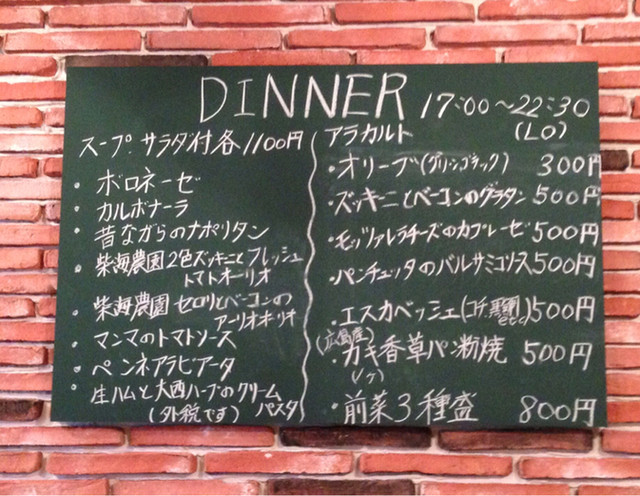 DINNER 17:00～22:30
(LO)
スープ.サラダ付各1100円
・ボロネーゼ
・カルボナーラ
・昔ながらのナポリタン
・柴海農園2色ズッキーニとフレッシュ
トマトオーリオ
・柴海農園セロリとベーコンの
アーリオオーリオ
・マンマのトマトソース
・ペンネアラビアータ
・生ハムと大西ハーブのクリーム
(外税です) パスタ
アラカルト
・オリーブ(グリーン,ブラック) 300円
・ズッキーニとベーコンのグラタン 500円
・モッツァレラチーズのカプレーゼ 500円
・パンチェッタのバルサミコソース 500円
・エスカベッシェ(コチ,黒鯛etc) 500円
(広島産)
・カキ香草パン粉焼 500円
・前菜3種盛 800円